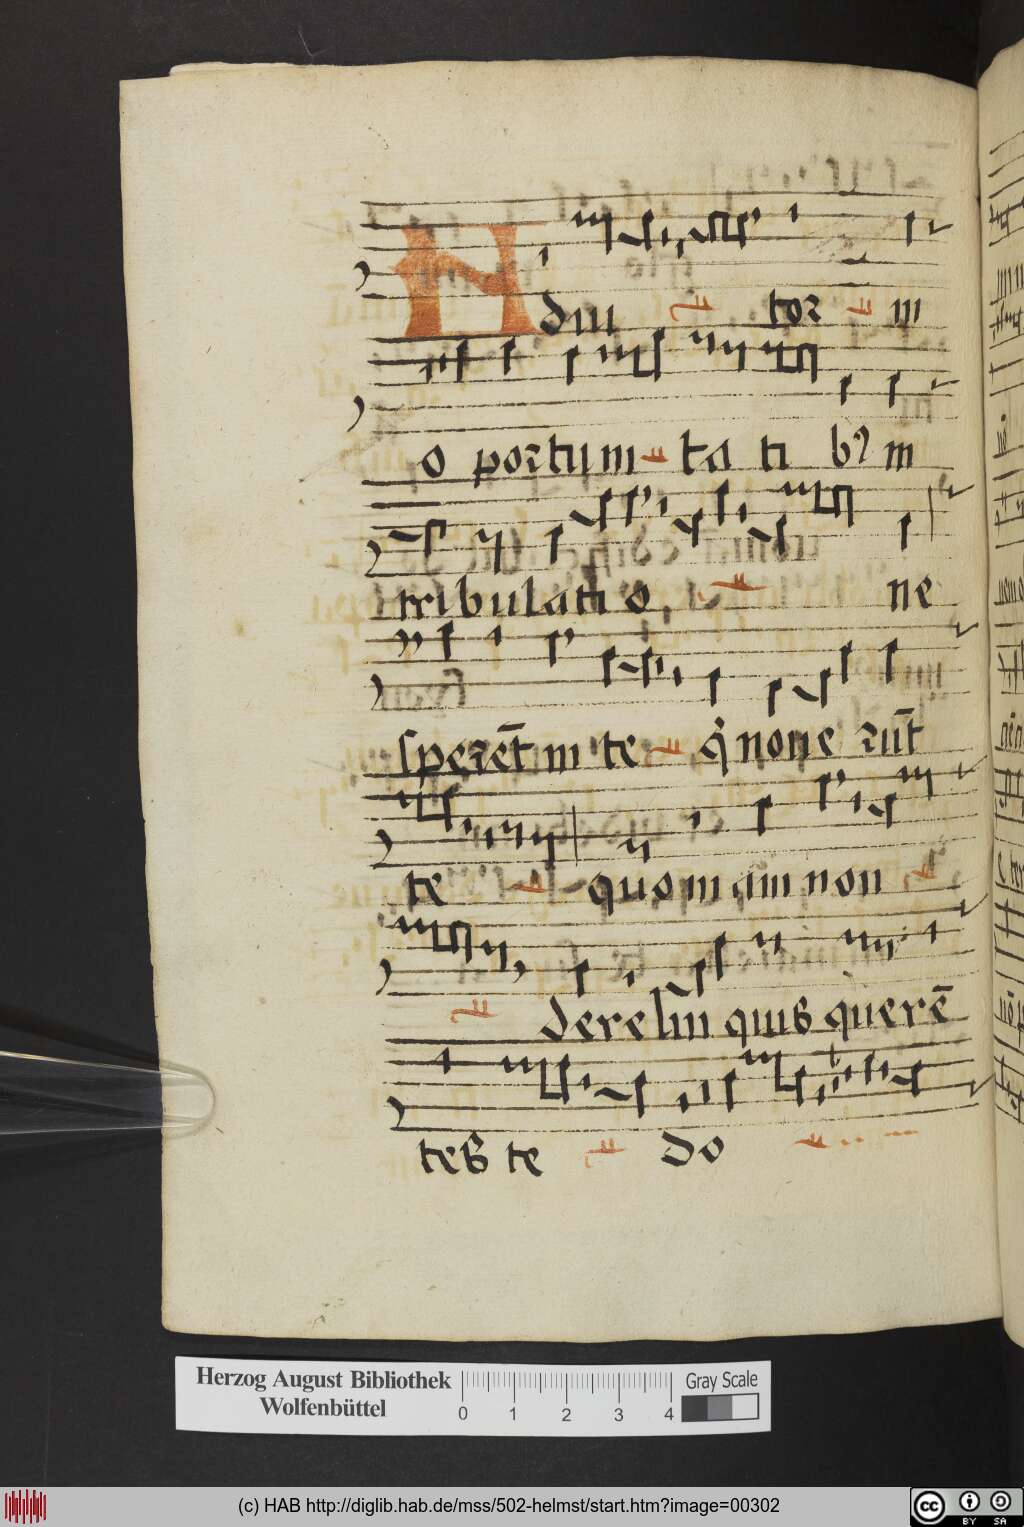 Adiu tor in
oportuni ta ti bꝰ in
tribulatio ne
sperēt in te q̇ noue rūt
te quoniam non
derelin quis querē
tes te do
Herzog August Bibliothek
Wolfenbüttel
0 1 2 3 4
Gray Scale
(c) HAB http://diglib.hab.de/mss/502-helmst/start.htm?image=00302
cc BY SA